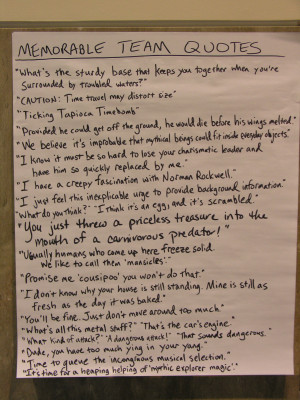 MEMORABLE TEAM QUOTES
"What's the sturdy base that keeps you together when you're
surrounded by troubled waters?"
"CAUTION: Time travel may distort size"
"Ticking Tapioca Timebomb"
"Provided he could get off the ground, he would die before his wings melted."
"We believe it's improbable that mythical beings could fit inside everyday objects."
"I know it must be so hard to lose your charismatic leader and
have him so quickly replaced by me."
"I have a creepy fascination with Norman Rockwell."
"I just feel this inexplicable urge to provide background information."
"What do you think?" "I think it's an egg, and it's scrambled."
"You just threw a priceless treasure into the
mouth of a carnivorous predator!"
"Usually humans who come up here freeze solid.
We like to call them 'mansicles'."
"Promise me 'cousipoo' you won't do that."
"I don't know why your house is still standing. Mine is still as
fresh as the day it was baked."
"You'll be fine. Just don't move around too much"
"What's all this metal stuff?" "That's the car's engine."
"What kind of attack?" "A dangerous attack!" "That sounds dangerous."
"Dude, you have too much ying in your yang."
"Time to queue the incongruous musical selection."
"It's time for a heaping helping of 'mythic explorer magic'."